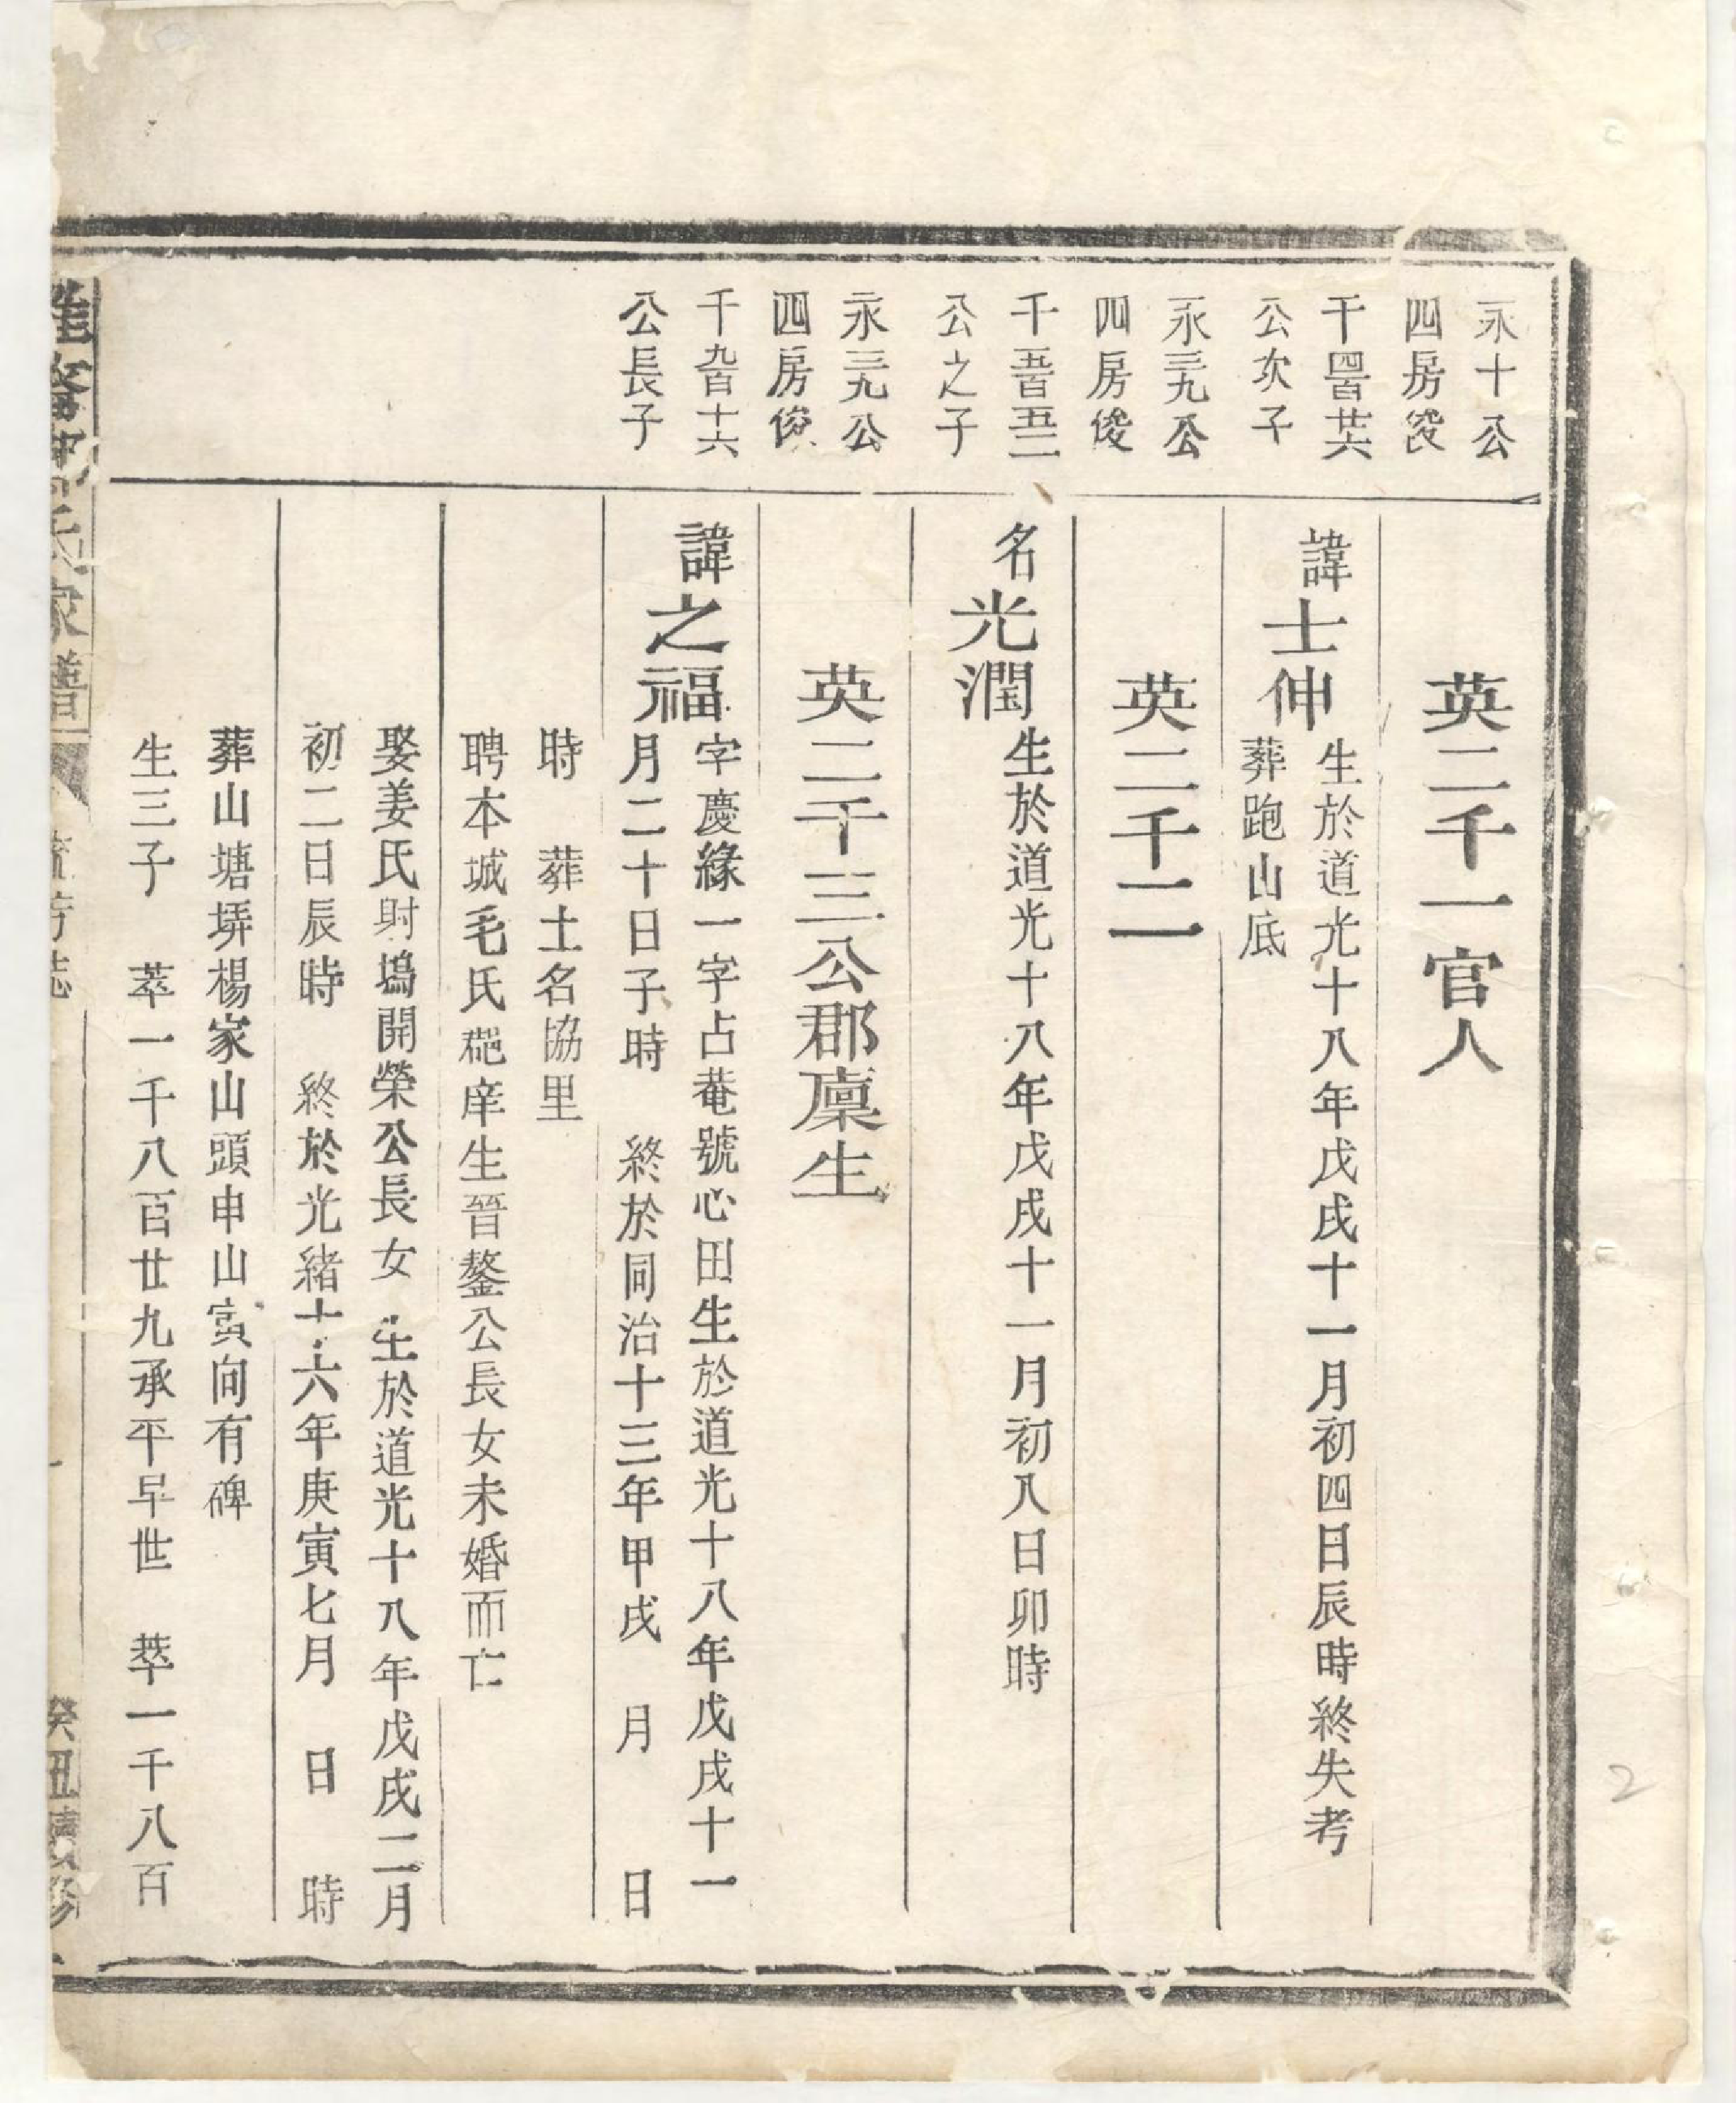 永十公
四房毀
千四百廿六
公次子
英二千一官人
諱士伸
生於道光十八年戊戌十一月初四日辰時終失考
葬跑山底
永三九公
四房俊
千五百五二
公之子
英二千二
名光潤
生於道光十八年戊戌十一月初八日卯時
永三九公
四房俊
千九百十六
公長子
英二千三公郡廩生
諱之福
字慶緣一字占菴號心田生於道光十八年戊戌十一
月二十日子時 終於同治十三年甲戌 月 日
時 葬土名協里
聘本城毛氏郡庠生晉鏊公長女未婚而亡
娶姜氏財塢開榮公長女 生於道光十八年戊戌二月
初二日辰時 終於光緒十六年庚寅七月 日 時
葬山塘塝楊家山頭申山寅向有碑
生三子 萃一千八百廿九承平早世 萃一千八百
氏家譜
癸丑
2